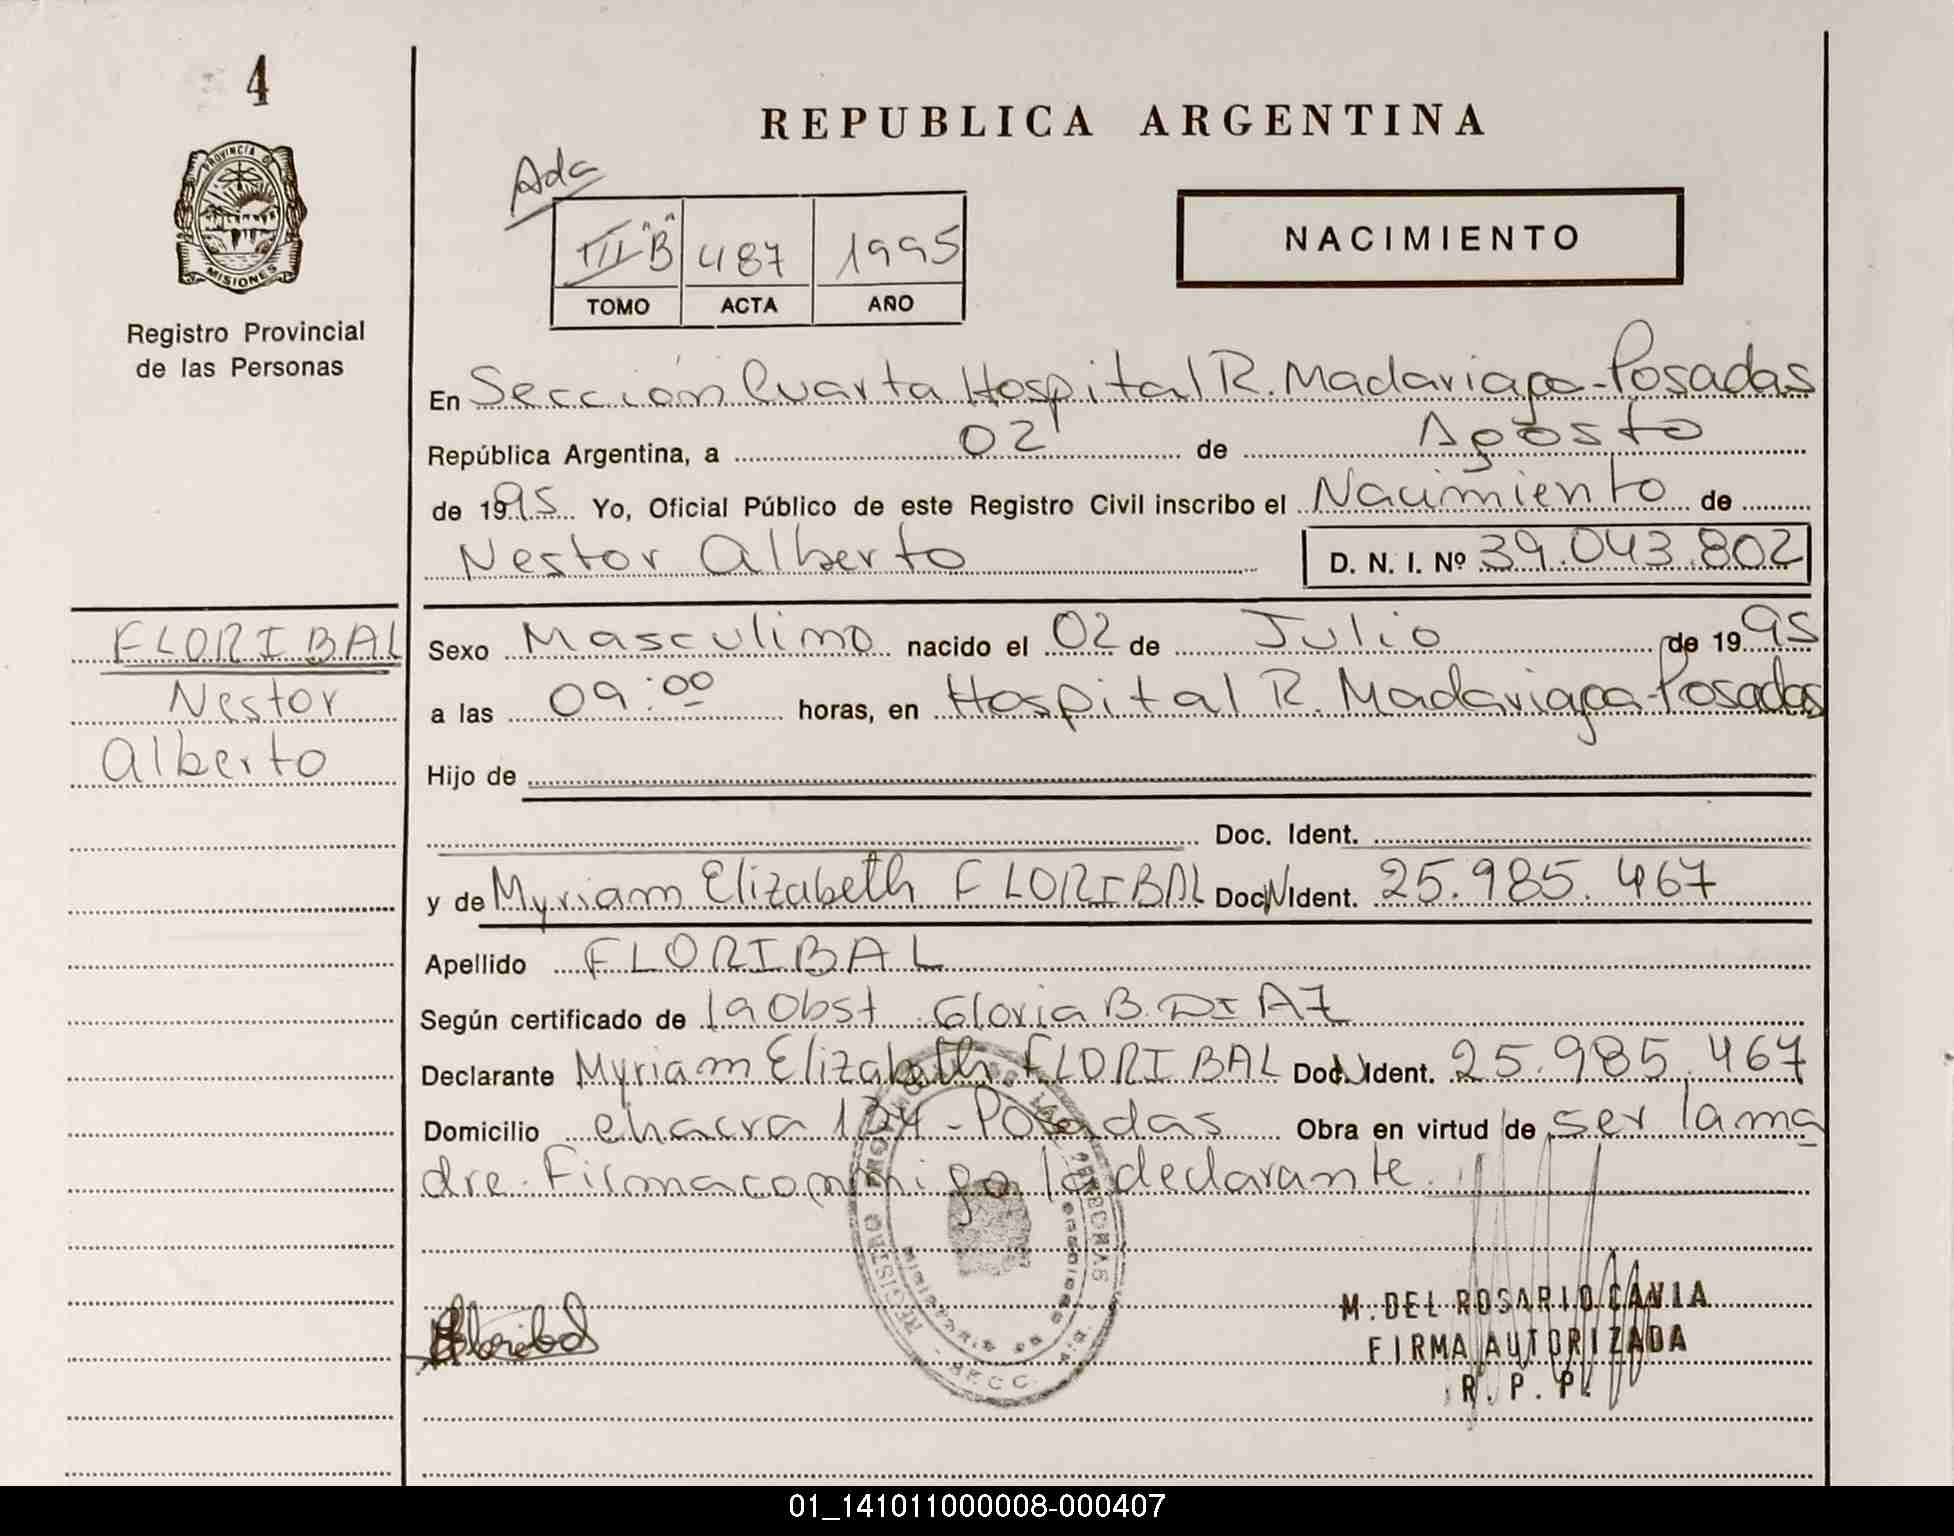 4
PROVINCIA DE
MISIONES
Registro Provincial
de las Personas
REPUBLICA ARGENTINA
Ada
III "B" 487 1995
TOMO ACTA AÑO
NACIMIENTO
En Sección Cuarta Hospital R. Madariaga-Posadas
República Argentina, a 02 de Agosto
de 1995 Yo, Oficial Público de este Registro Civil inscribo el Nacimiento de
Nestor Alberto D. N. I. Nº 39.043.802
FLORIBAL
Nestor
Alberto
Sexo Masculino nacido el 02 de Julio de 1995
a las 09:00 horas, en Hospital R. Madariaga-Posadas
Hijo de
Doc. Ident.
y de Myriam Elizabeth FLORIBAL Doc. N Ident. 25.985.467
Apellido FLORIBAL
Según certificado de la Obst Gloria B. DIAZ
Declarante Myriam Elizabeth FLORIBAL Doc. N Ident. 25.985.467
Domicilio chacra 124 - Posadas Obra en virtud de ser la ma
dre. Firma conmigo la declarante.
Floribal
M. DEL ROSARIO CAVIA
FIRMA AUTORIZADA
R. P. P.
01_141011000008-000407